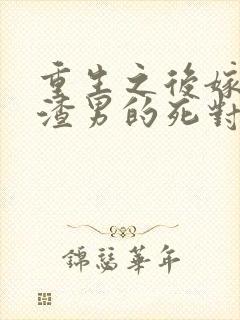 重生之後嫁
渣男的死對
錦瑟華年